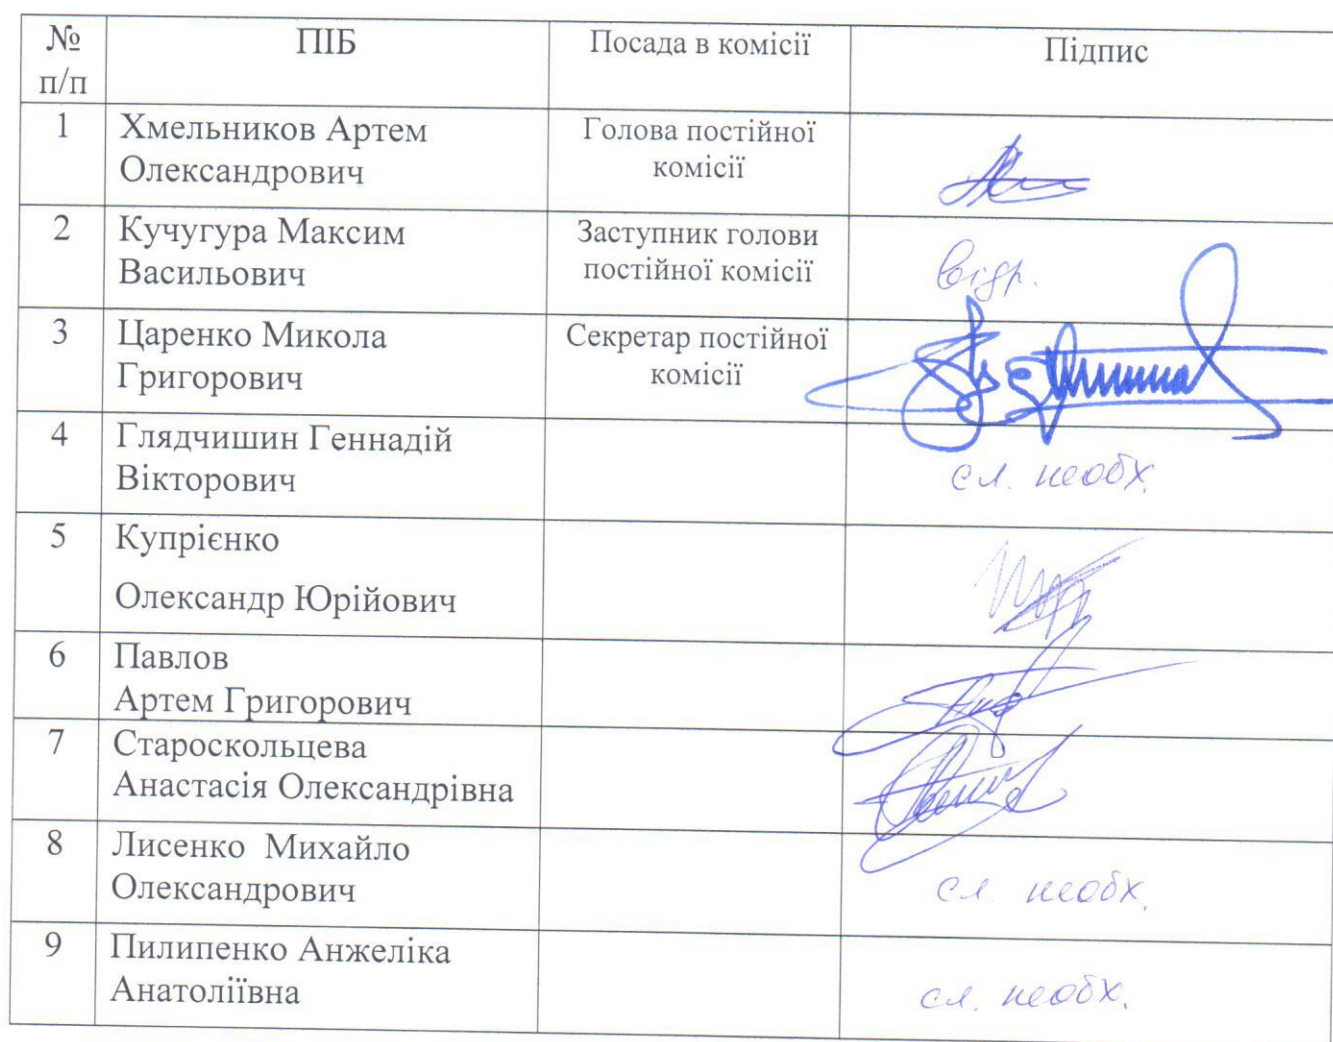 № п/п ПІБ Посада в комісії Підпис
1 Хмельников Артем Олександрович Голова постійної комісії
2 Кучугура Максим Васильович Заступник голови постійної комісії відр.
3 Царенко Микола Григорович Секретар постійної комісії
4 Глядчишин Геннадій Вікторович сл. необх.
5 Купрієнко Олександр Юрійович
6 Павлов Артем Григорович
7 Староскольцева Анастасія Олександрівна
8 Лисенко Михайло Олександрович сл. необх.
9 Пилипенко Анжеліка Анатоліївна сл. необх.